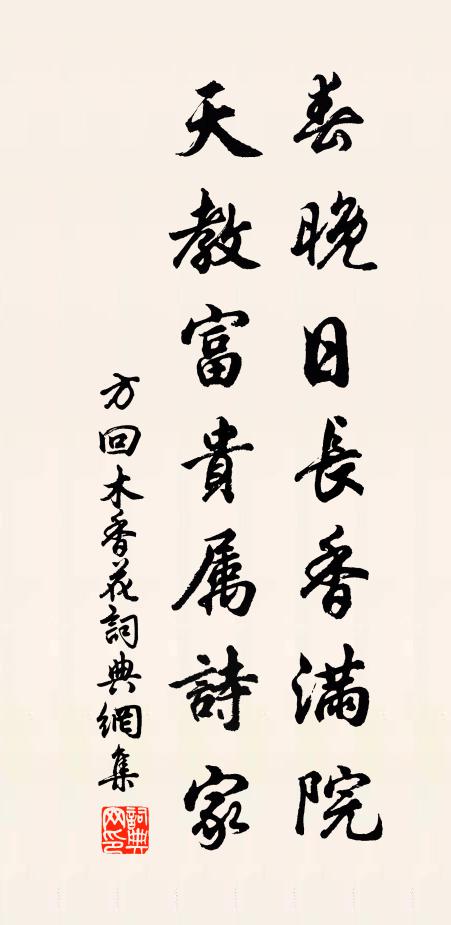 春晚日長香滿院
天教富貴属詩家
方回木香花詞典網集
詞典网印